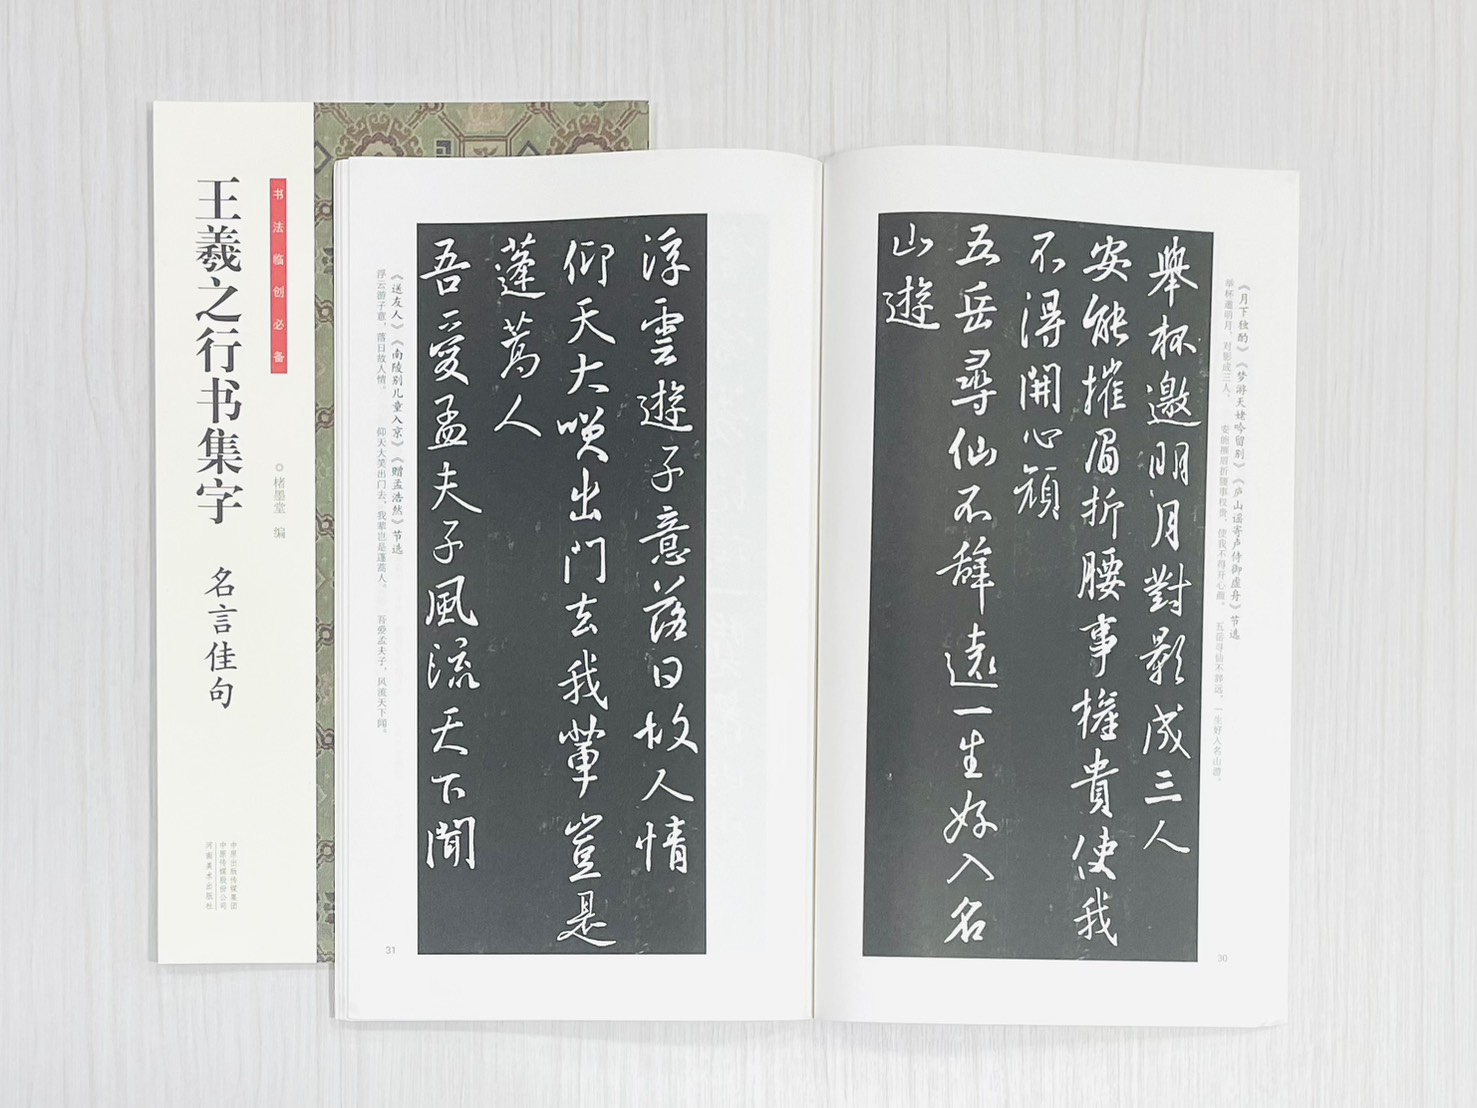 书法临创必备
王羲之行书集字 名言佳句
楮墨堂 编
中原出版传媒集团
中原传媒股份公司
河南美术出版社
《月下独酌》《梦游天姥吟留别》《庐山谣寄卢侍御虚舟》节选
举杯邀明月，对影成三人。 安能摧眉折腰事权贵，使我不得开心颜。 五岳寻仙不辞远，一生好入名山游。
舉杯邀明月對影成三人
安能摧眉折腰事權貴使我
不得開心顔
五岳尋仙不辭遠一生好入名
山遊
30
浮雲遊子意落日故人情
仰天大笑出门去我輩豈是
蓬蒿人
吾愛孟夫子風流天下聞
《送友人》《南陵别儿童入京》《赠孟浩然》节选
浮云游子意，落日故人情。 仰天大笑出门去，我辈岂是蓬蒿人。 吾爱孟夫子，风流天下闻。
31